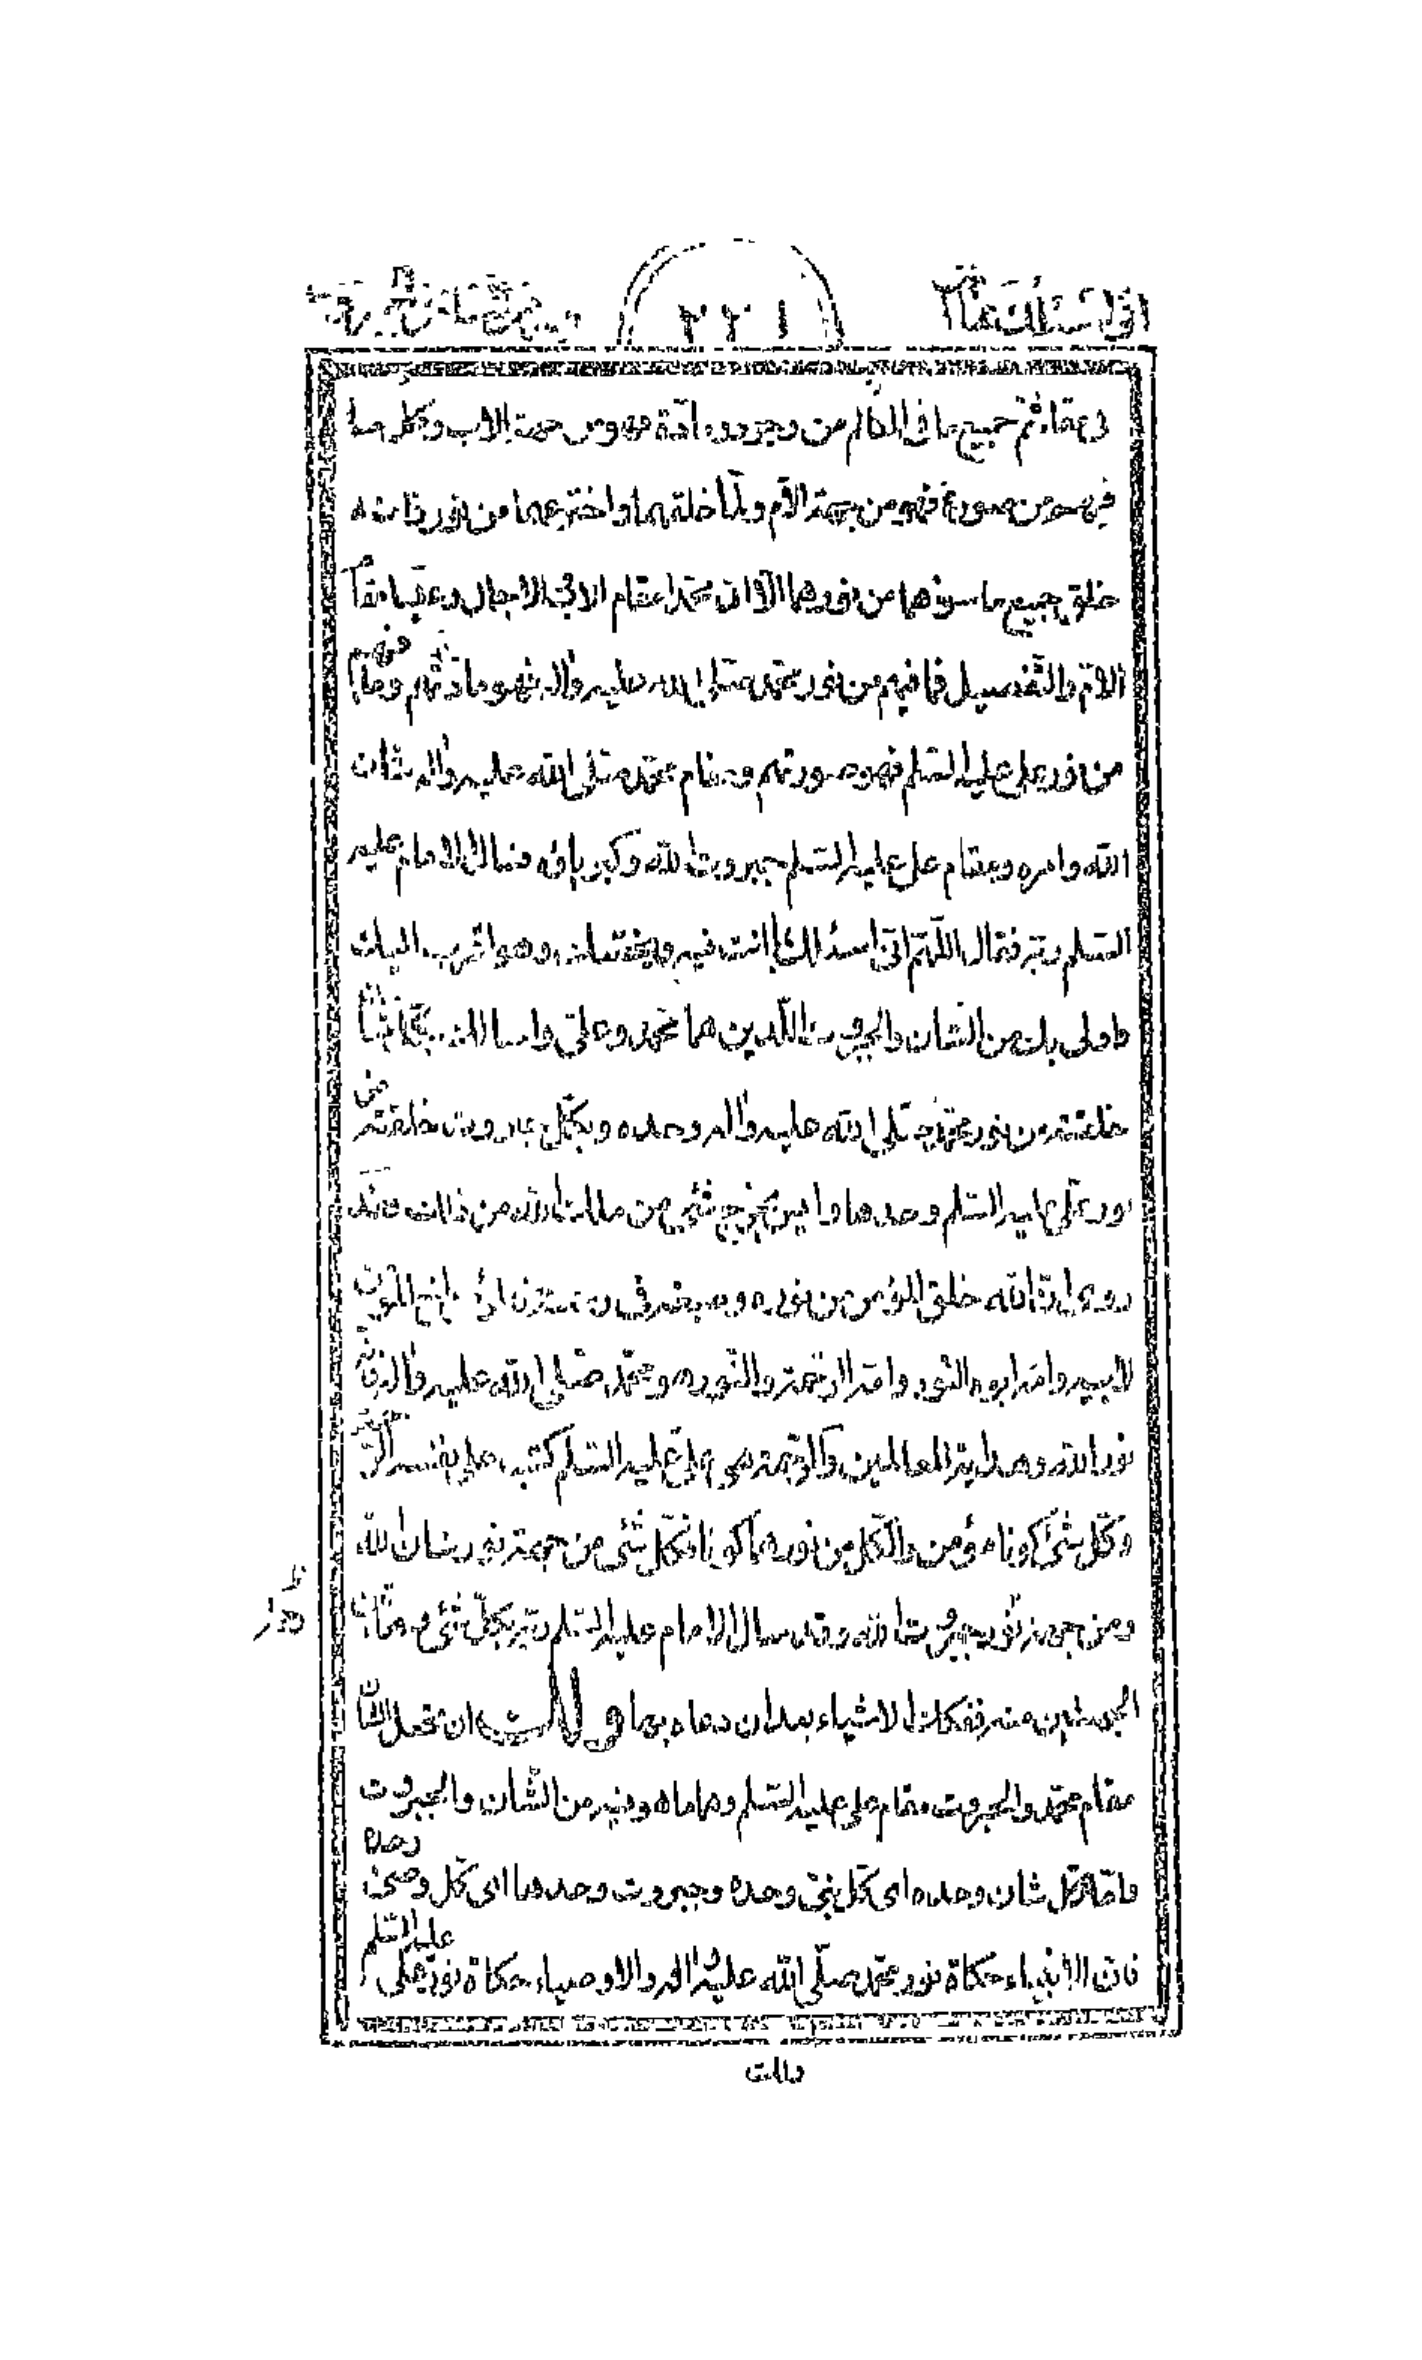 ٢٢١
جميع ما في العالم من وجود ومادة فهو من جهة الاب وكل ما
فيه من صورة فهو من جهة الام ولما خلقهما واخترعهما من نور ذاته
خلق جميع ما سواهما من نورهما الا ان محمدا مقام الاب الاجمال وعليا مقام
الام والتفصيل فما فيهم من نور محمد صلى الله عليه واله فهو مادتهم وما فيهم
من نور علي عليه السلم فهو صورتهم ومقام محمد صلى الله عليه واله شان
الله وامره ومقام علي عليه السلم جبروت الله وكبرياؤه فسال الامام عليه
السلم ربه فقال اللهم اني اسئلك بما انت فيه وهو اقرب اليك
واولى بك من الشان والجبروت اللذين هما محمد وعلي واسالك بكل شان
خلقته من نور محمد صلى الله عليه واله وحده وبكل جبروت خلقته من
نور علي عليه السلم وحدها واين يخرج شئ من ملك الله من ذلك وقد
روي ان الله خلق المؤمن من نوره وصبغه في رحمته فالمؤمن اخ المؤمن
لابيه وامه ابوه النور وامه الرحمة والنور هو محمد صلى الله عليه واله فانه
نور الله وهدايته للعالمين والرحمة هي علي عليه السلم كتب على نفسه الرحمة
وكل شئ كونا مؤمن والكل من نورهما كونا فكل شئ من جهة نور شان الله
ومن جهة نور جبروت الله وقد سال الامام عليه السلم ربه بكل شئ من هاتين
الجهتين منه فكل الاشياء بعد ان دعاه بهما ولك ان تجعل الشان
مقام محمد والجبروت مقام علي عليه السلم وهما ما هو فيه من الشان والجبروت
واما كل شان وحده اي كل نبي وحده وجبروت وحدها اي كل وصي وحده
فان الانبياء حكاة نور محمد صلى الله عليه واله والاوصياء حكاة نور علي عليه السلم
ولك